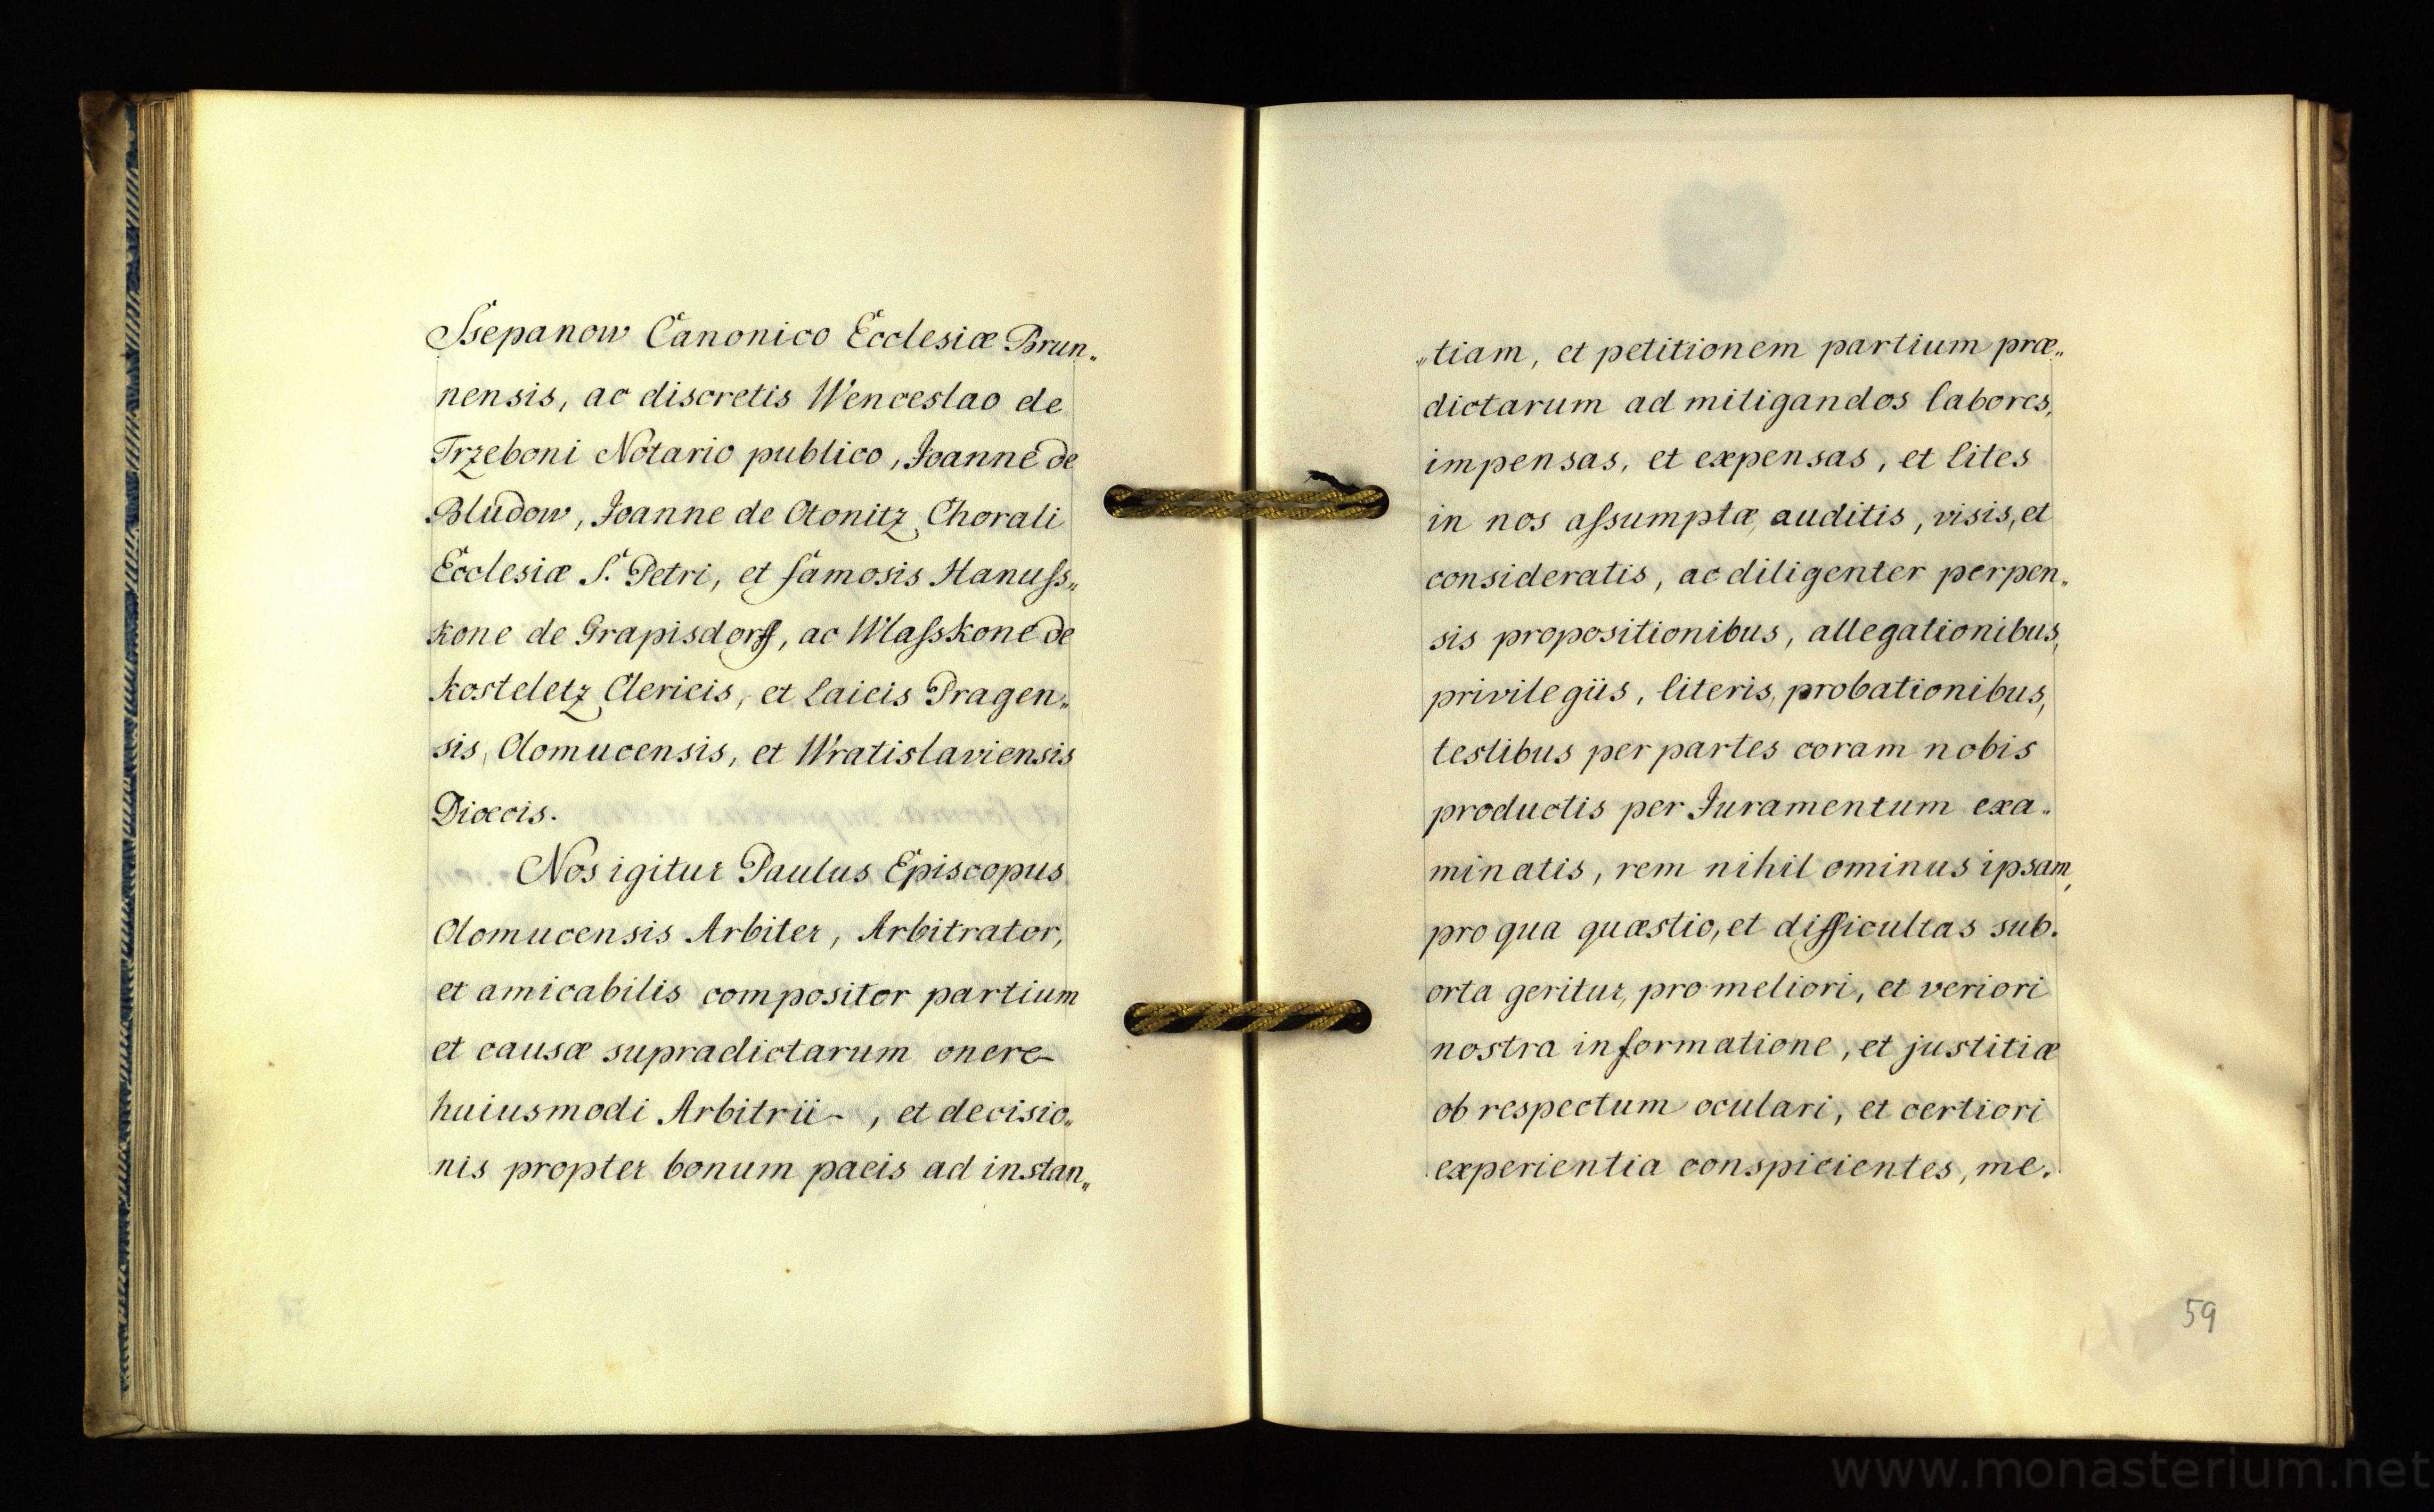 Ssepanow Canonico Ecclesiæ Brun„
nensis, ac discretis Wenceslao de
Trzeboni Notario publico, Joanne de
Bludow, Joanne de Otonitz Chorali
Ecclesiæ S. Petri, et famosis Hanuſs„
kone de Grapisdorff, ac Wlaſskone de
Kosteletz Clericis, et Laicis Pragen„
sis, Olomucensis, et Wratislaviensis
Diœcis.
Nos igitur Paulus Episcopus
Olomucensis Arbiter, Arbitrator,
et amicabilis compositor partium
et causæ supradictarum onere
huiusmodi Arbitrii, et decisio„
nis propter bonum pacis ad instan„
„tiam, et petitionem partium præ„
dictarum ad mitigandos labores,
impensas, et expensas, et lites
in nos aſsumptæ, auditis, visis, et
consideratis, ac diligenter perpen„
sis propositionibus, allegationibus,
privilegiis, literis, probationibus,
testibus per partes coram nobis
productis per Juramentum exa„
minatis, rem nihil ominus ipsam,
pro qua quæstio, et difficultas sub„
orta geritur, pro meliori, et veriori
nostra informatione, et justitiæ
ob respectum oculari, et certiori
experientia conspicientes, me„
59
www.monasterium.net